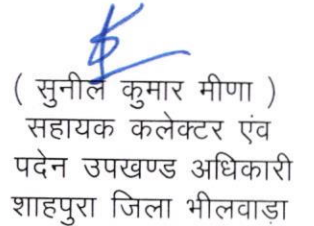 ( सुनील कुमार मीणा )
सहायक कलेक्टर एंव
पदेन उपखण्ड अधिकारी
शाहपुरा जिला भीलवाडा